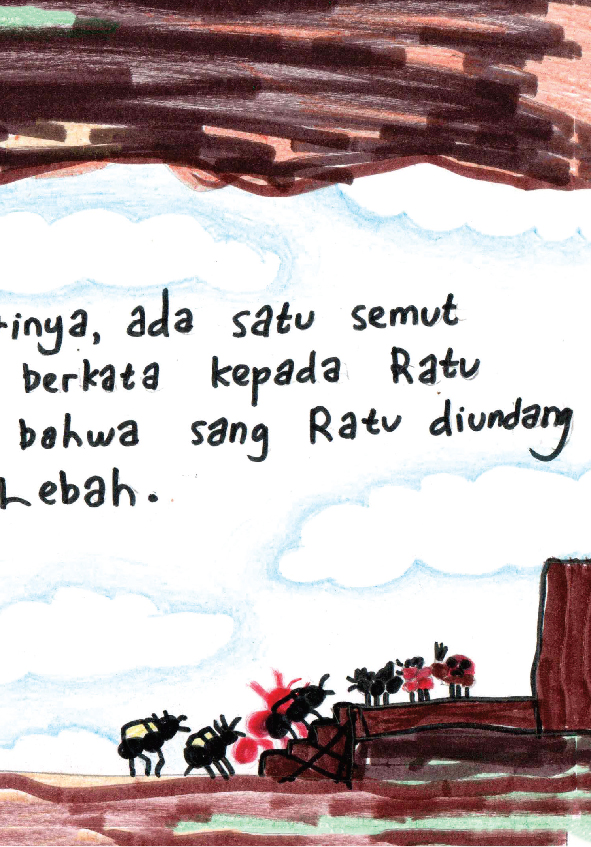 inya, ada satu semut
berkata kepada Ratu
bahwa sang Ratu diundang
Lebah.